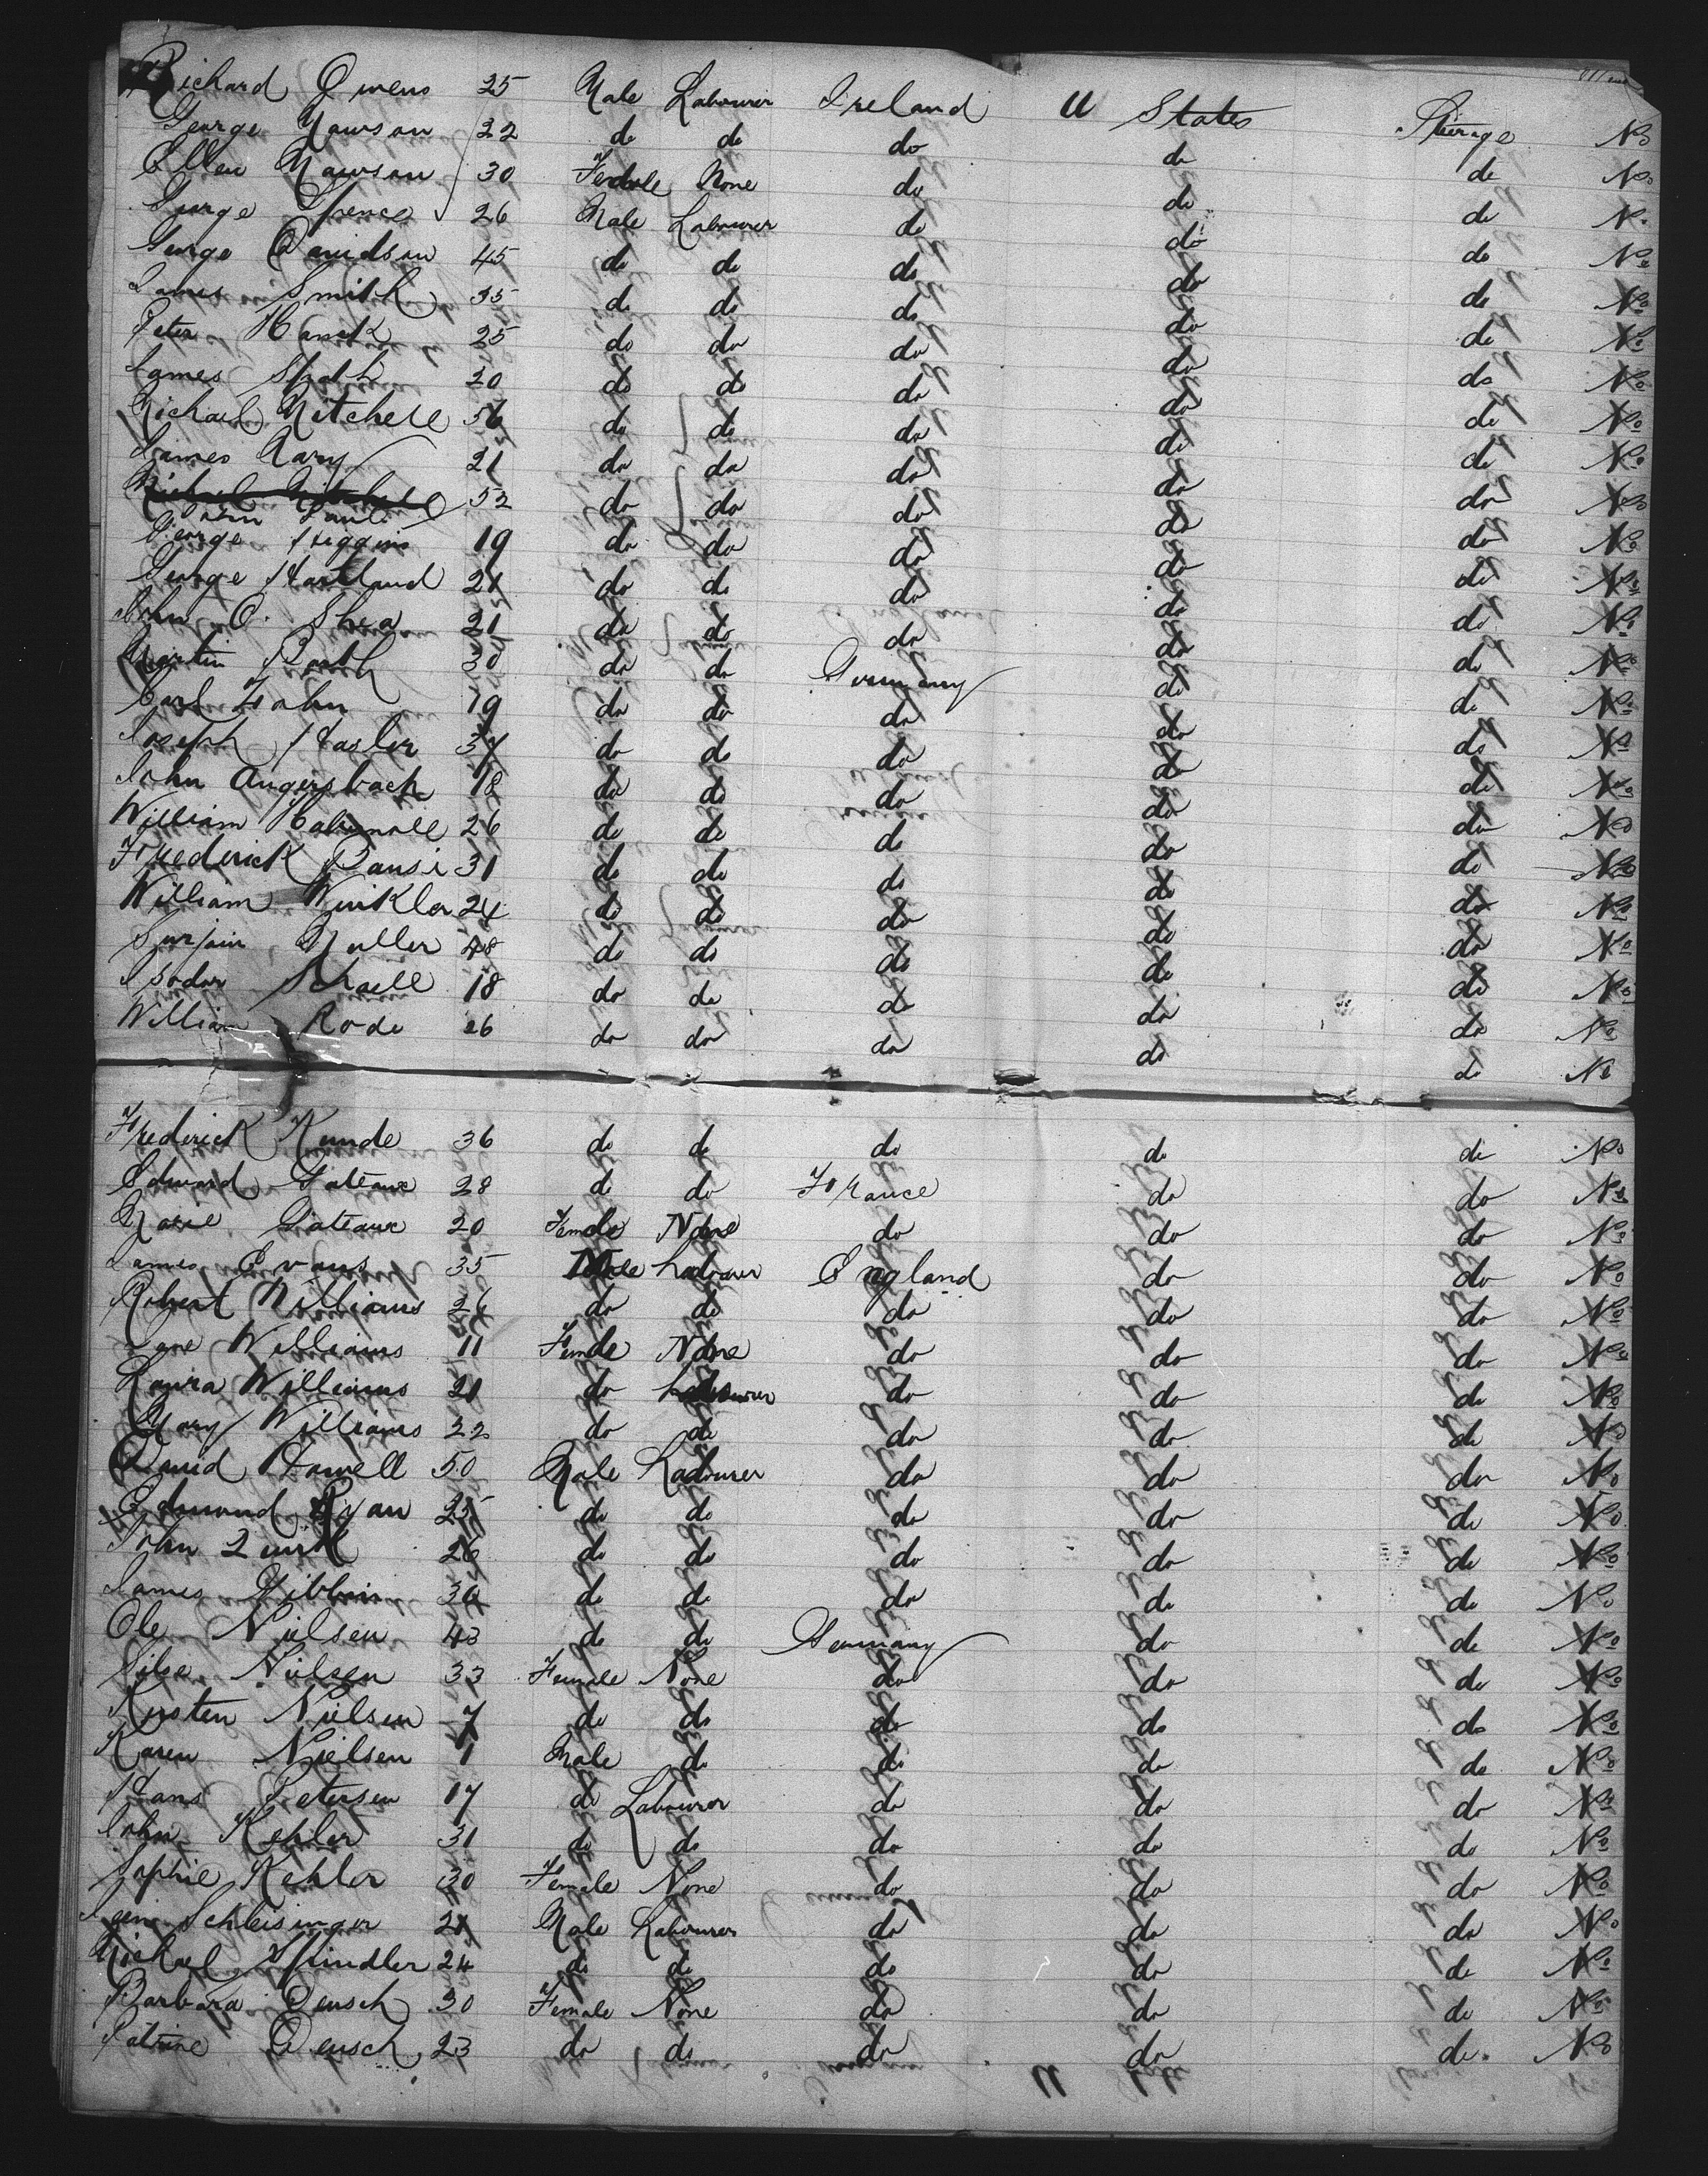 Richard Owens 25 Male Labourer Ireland U States Steerage No
George Mawson 22 do do do do do No
Ellen Mawson 30 Female None do do do No
George Spence 26 Male Labourer do do do No
George Davidson 45 do do do do do No
James Smith 35 do do do do do No
Peter 25 do do do do do No
James 20 do do do do do No
Michael Mitchell 56 do do do do do No
James 21 do do do do do No
Michael Mitchell 52 do do do do do No
John
George Higgins 19 do do do do do No
George Hartland 21 do do do do do No
John O. Shea 21 do do do do do No
Martin 30 do do Germany do do No
Carl Hahn 19 do do do do do No
Joseph Hasler 34 do do do do do No
John Angersbach 18 do do do do do No
William 26 do do do do do No
Frederick Bansi 31 do do do do do No
William Winkler 24 do do do do do No
Muller 48 do do do do do No
Isodor 18 do do do do do No
William Rode 26 do do do do do No
Frederick Kunde 36 do do do do do No
Edward Gateaux 28 do do France do do No
Marie Gateaux 20 Female None do do do No
James Evans 35 Male Labourer England do do No
Robert Williams 26 do do do do do No
Jane Williams 11 Female None do do do No
Laura Williams 21 do Labourer do do do No
Mary Williams 22 do do do do do No
David Howell 50 Male Labourer do do do No
Edmund Ryan 25 do do do do do No
John Quirk 26 do do do do do No
James Gibbin 30 do do do do do No
Ole Nielsen 43 do do Germany do do No
Silse Nielsen 33 Female None do do do No
Kirsten Nielsen 7 do do do do do No
Karen Nielsen 1 Male do do do do No
Hans Petersen 17 do Labourer do do do No
John Kehler 31 do do do do do No
Sophie Kehler 30 Female None do do do No
Schleisinger 21 Male Labourer do do do No
Michael Spindler 24 do do do do do No
Barbara Deusch 30 Female None do do do No
Patrine Deusch 23 do do do do do No